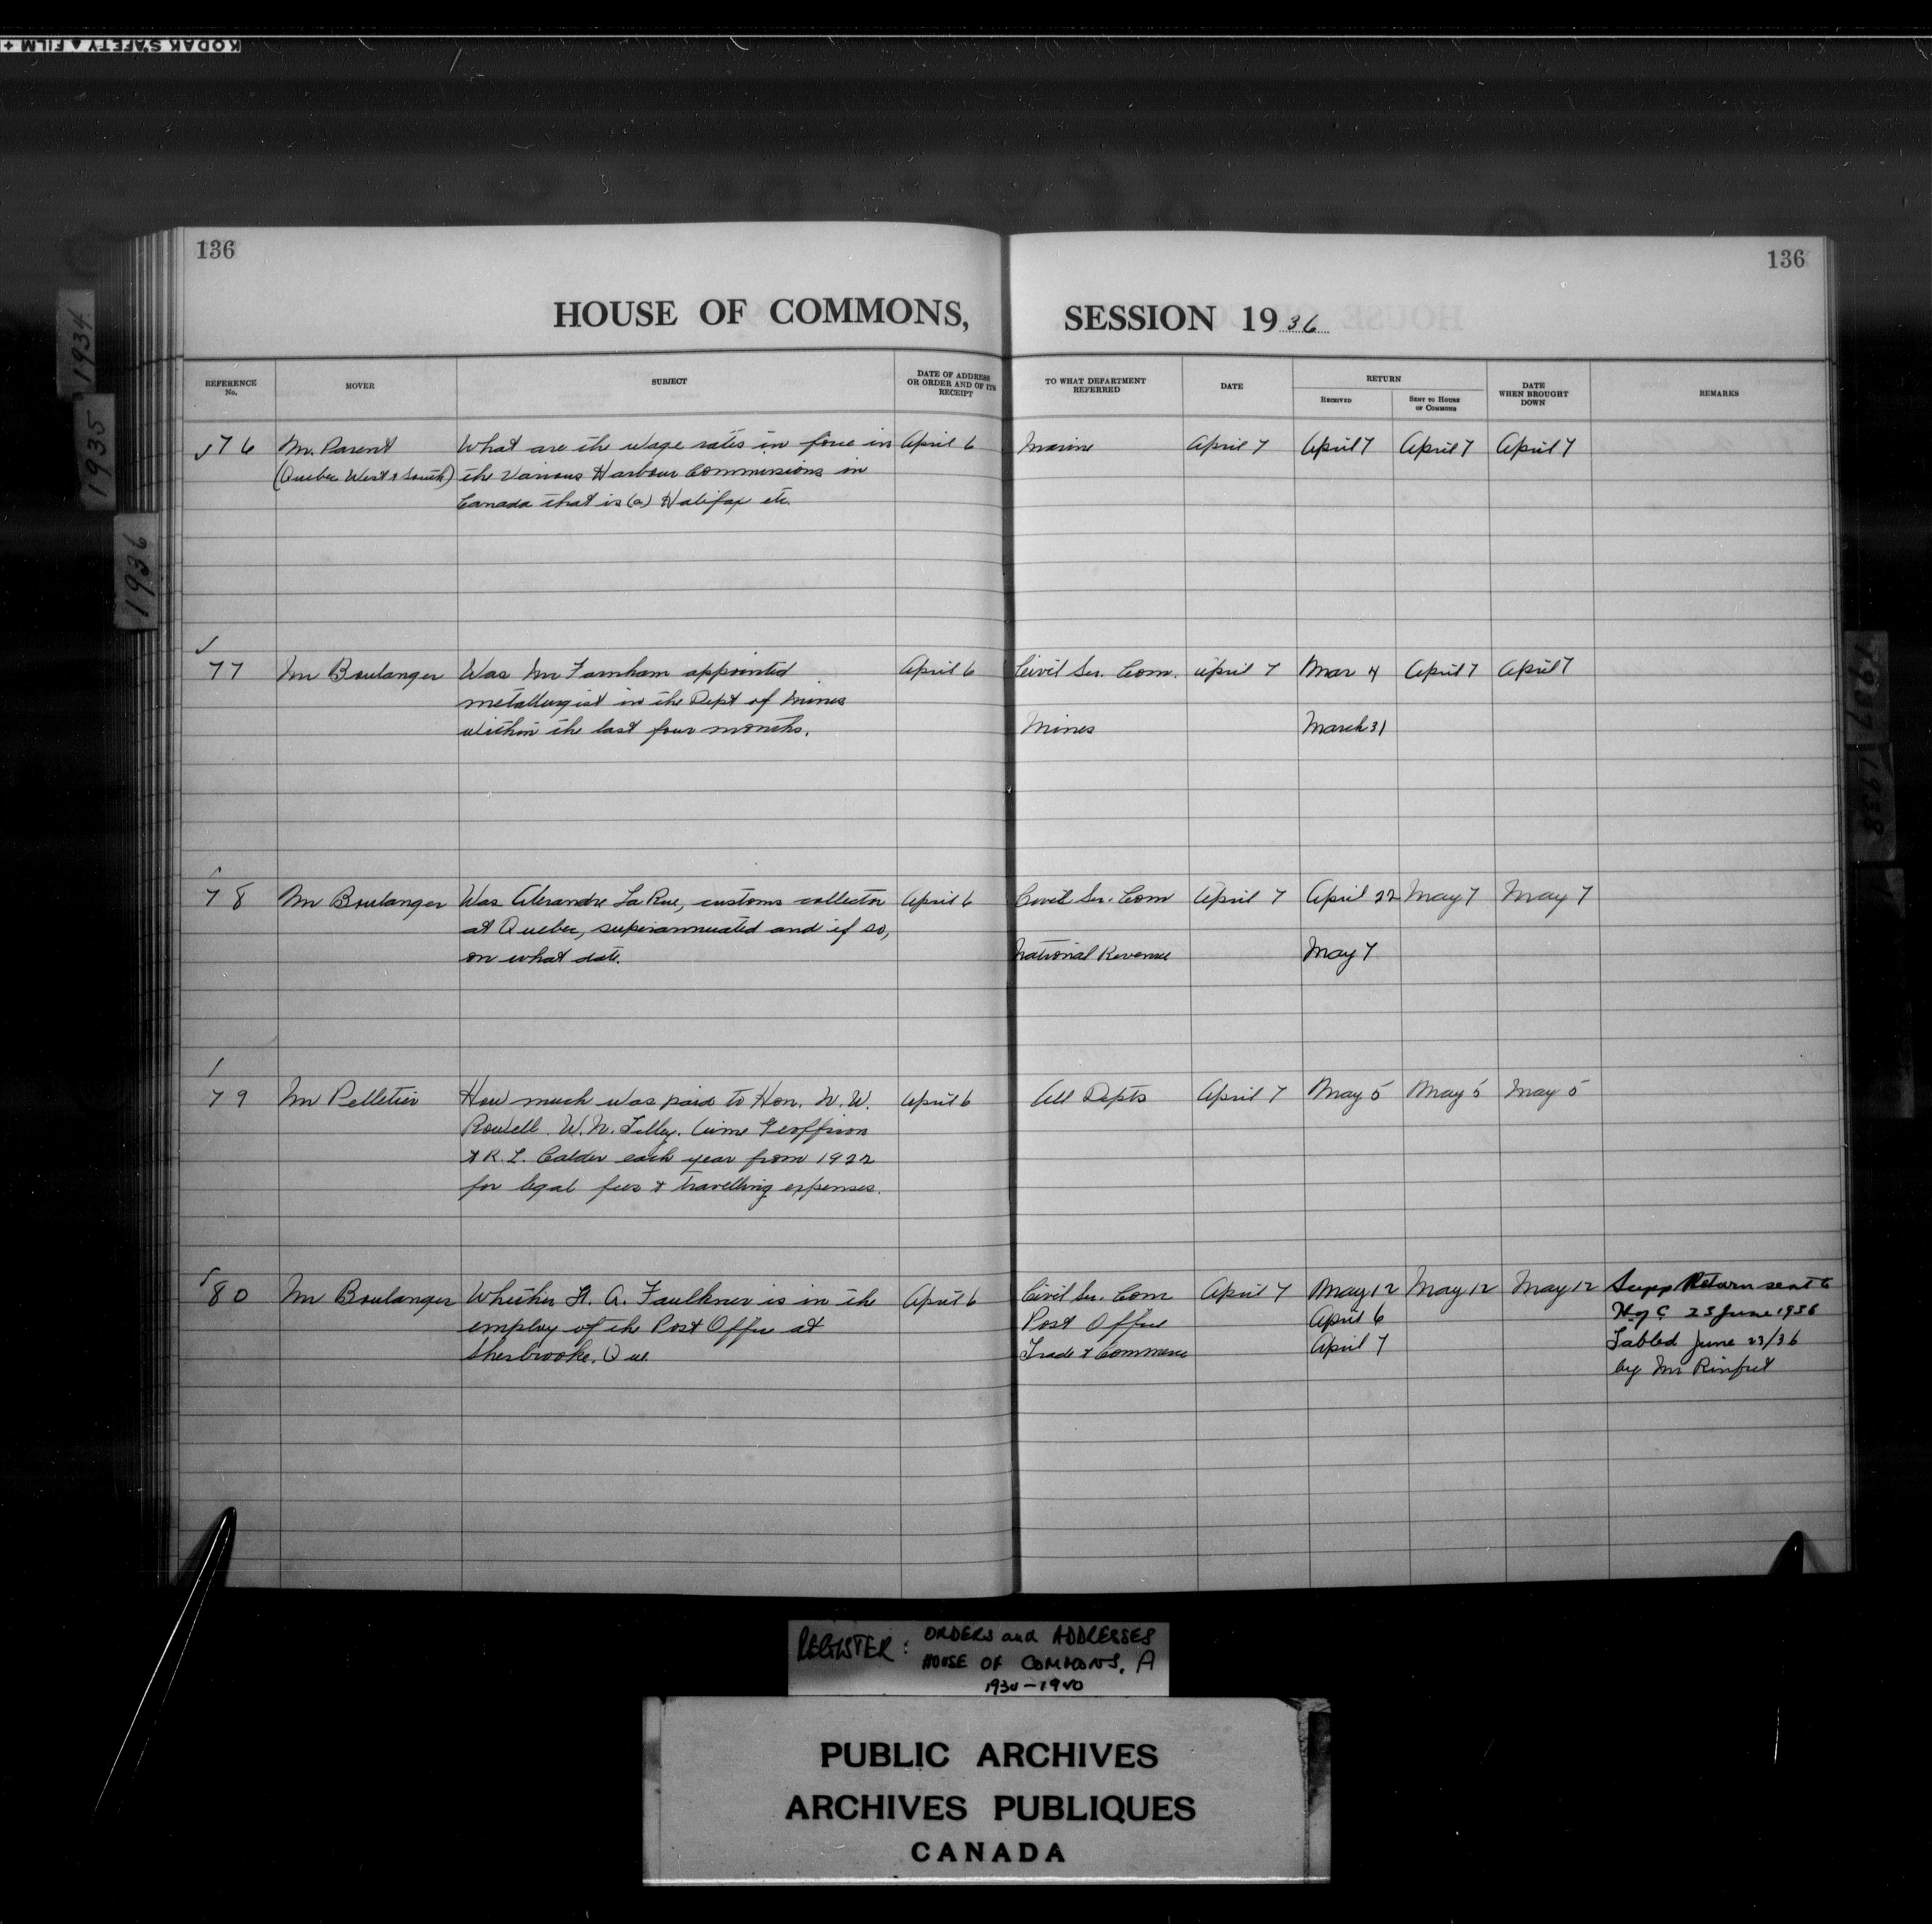 KODAK SAFETY ▲ FILM +
136
136
HOUSE OF COMMONS,
SESSION 1936
1934
1935
1936
1937
1938
REFERENCE No.
MOVER
SUBJECT
DATE OF ADDRESS OR ORDER AND OF ITS RECEIPT
TO WHAT DEPARTMENT REFERRED
DATE
RETURN
RECEIVED
SENT TO HOUSE OF COMMONS
DATE WHEN BROUGHT DOWN
REMARKS
76 Mr. Parent What are the wage rates in force in April 6 Marine April 7 April 7 April 7 April 7
(Quebec West & South) the Various Harbour Commissions in
Canada that is (a) Halifax etc.
77 Mr Boulanger Was Mr Farnham appointed April 6 Civil Ser. Com. April 7 Mar 4 April 7 April 7
metallurgist in the Dept of Mines
within the last four months. Mines March 31
78 Mr Boulanger Was Alexandre La Rue, customs collector April 6 Civil Ser. Com April 7 April 22 May 7 May 7
at Quebec, superannuated and if so,
on what date. National Revenue May 7
79 Mr Pelletier How much was paid to Hon. N. W. April 6 All Depts April 7 May 5 May 5 May 5
Rowell. W. N. Tilley. Aime Geoffrion
& R. L. Calder each year from 1922
for legal fees & travelling expenses.
80 Mr Boulanger Whether H. A. Faulkner is in the April 6 Civil Ser. Com April 7 May 12 May 12 May 12 Supp Return sent to
employ of the Post Office at Post Office April 6 H of C 23 June 1936
Sherbrooke, Que. Trade & Commerce April 7 Tabled June 23/36
by Mr Rinfret
REGISTER: ORDERS and ADDRESSES
HOUSE OF COMMONS, A
1930-1940
PUBLIC ARCHIVES
ARCHIVES PUBLIQUES
CANADA